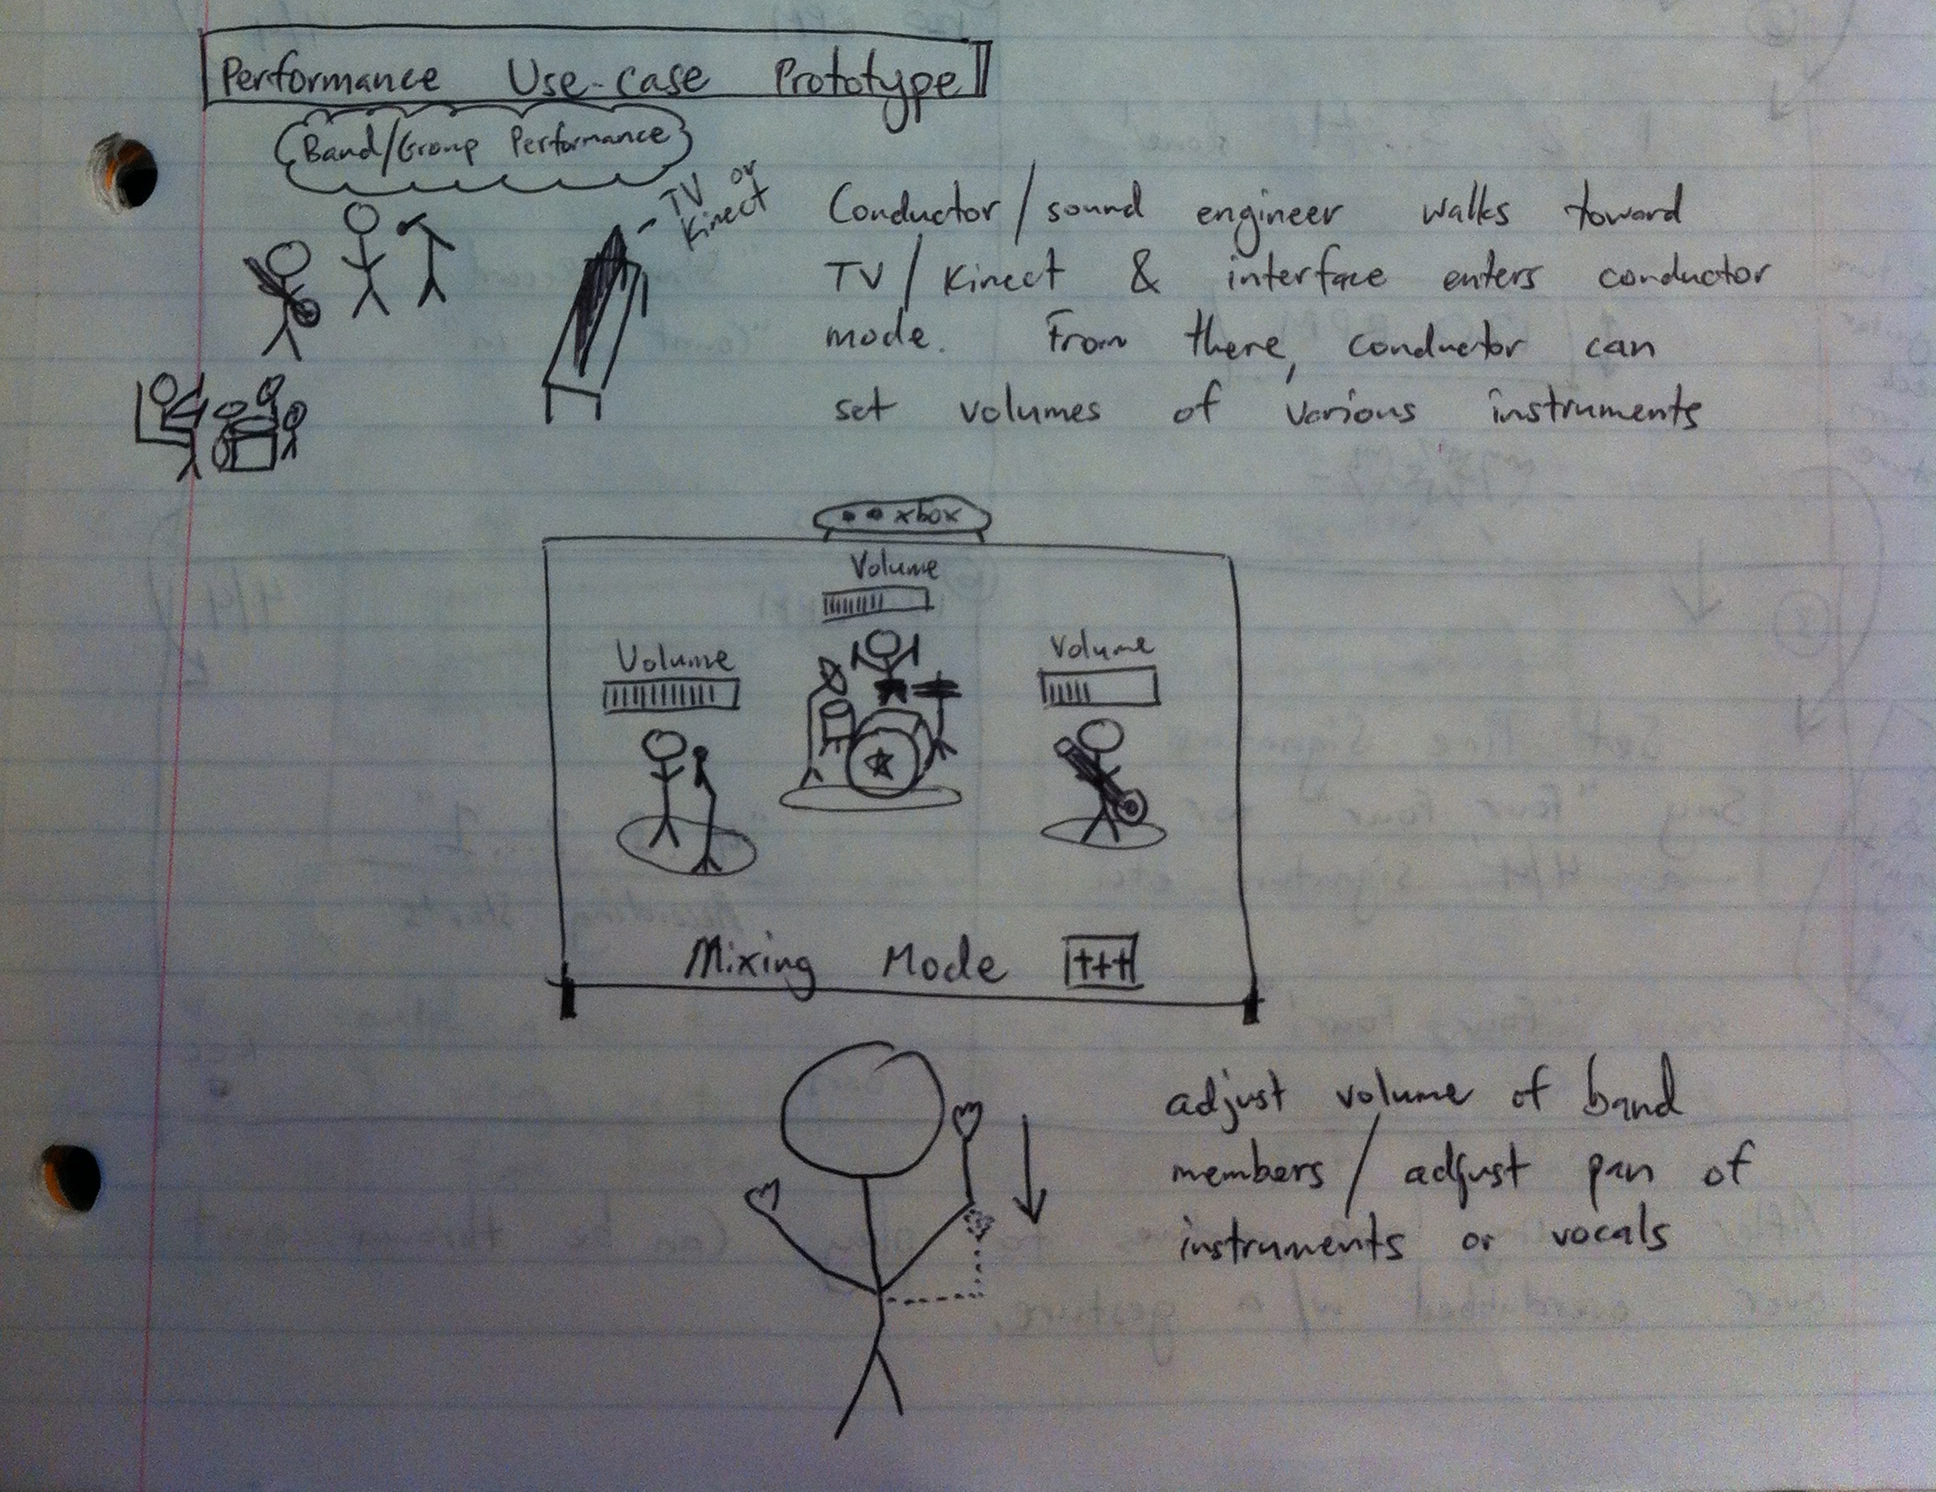 Performance Use-case Prototype
Band/Group Performance
TV or
Kinect
Conductor/sound engineer walks toward
TV/Kinect & interface enters conductor
mode. From there, conductor can
set volumes of various instruments
xbox
Volume
Volume
Volume
Mixing Mode
adjust volume of band
members/adjust pan of
instruments or vocals